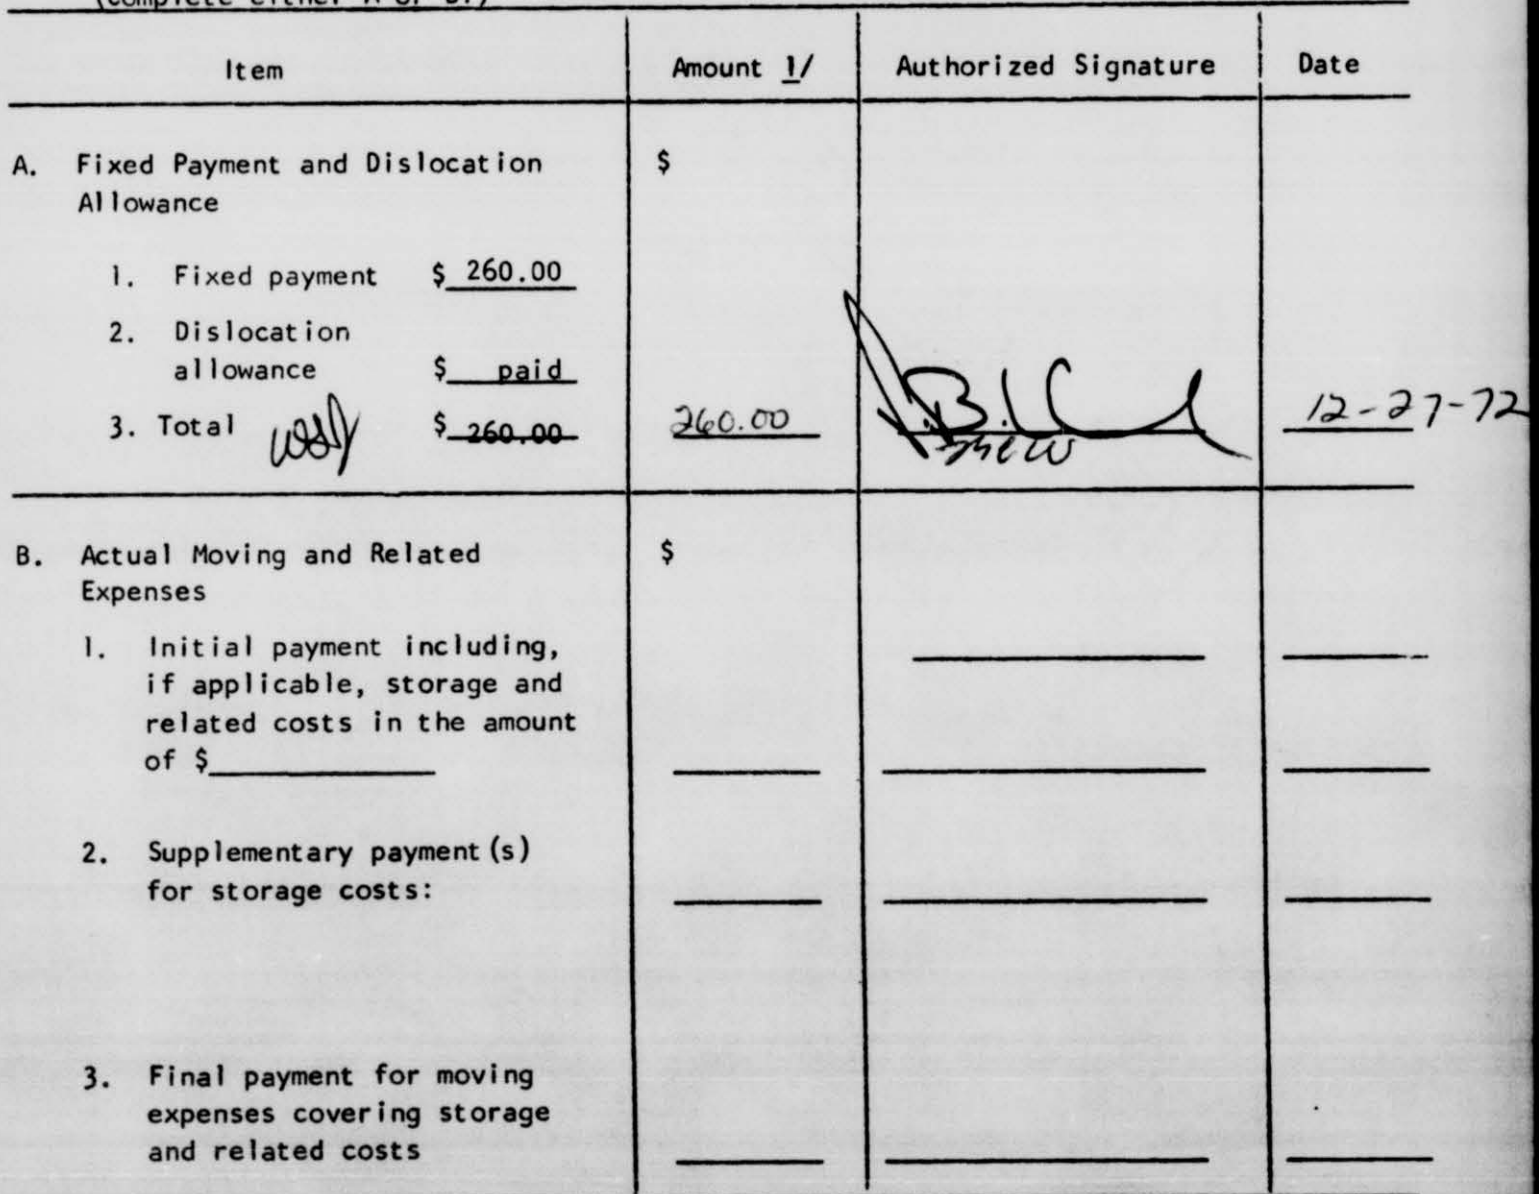 (Complete either A or B.)
Item Amount 1/ Authorized Signature Date
A. Fixed Payment and Dislocation $
Allowance
1. Fixed payment $ 260.00
2. Dislocation
allowance $ paid
3. Total $ 260.00 260.00 12-27-72
B. Actual Moving and Related $
Expenses
1. Initial payment including,
if applicable, storage and
related costs in the amount
of $
2. Supplementary payment(s)
for storage costs:
3. Final payment for moving
expenses covering storage
and related costs